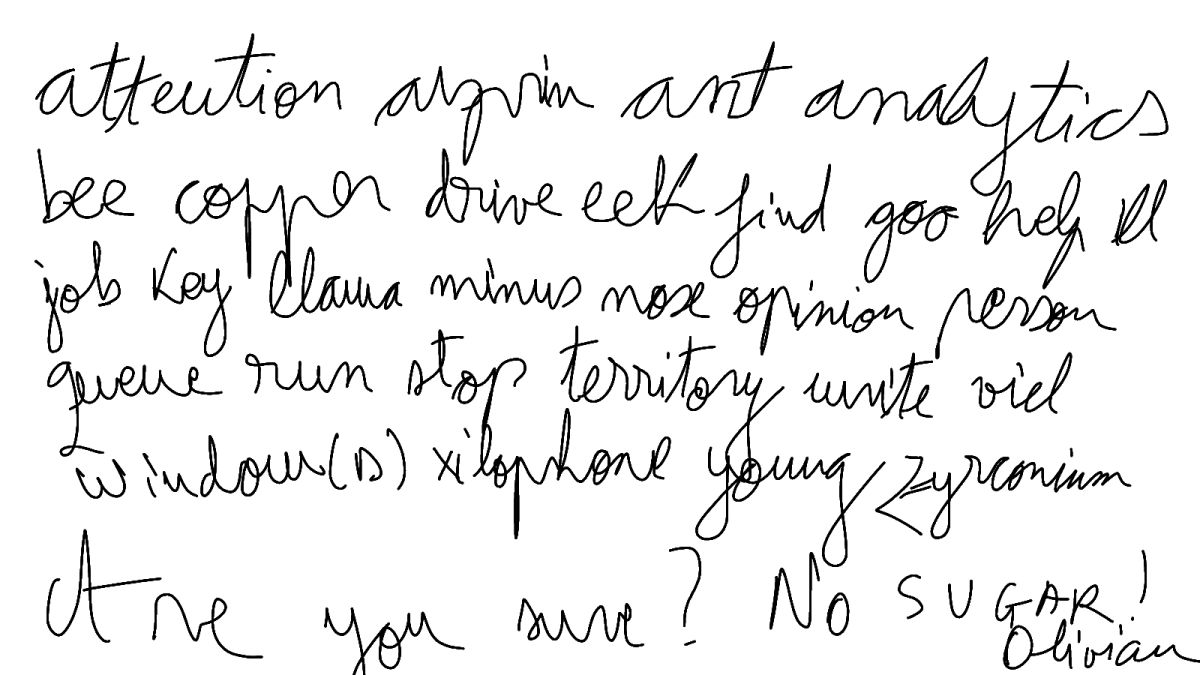 attention aspirin ant analytics
bee copper drive eek find goo help ill
job key llama minus nose opinion person
queue run stop territory unite
window(s) xilophone young zyrconium
Are you sure? No SUGAR!
Olivian